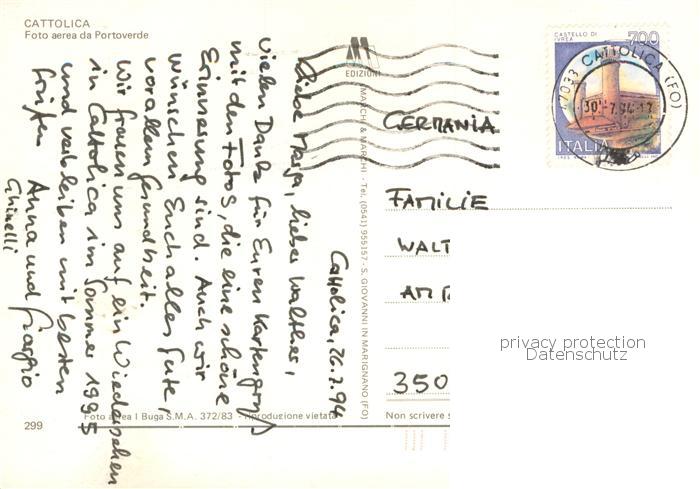 CATTOLICA
Foto aerea da Portoverde
Cattolica, 26.7.94
liebe Walther,
vielen Dank für Euren Kartengruß
mit den Fotos, die eine schöne
Erinnerung sind. Auch wir
wünschen Euch alles Gute,
vor allem Gesundheit.
Wir freuen uns auf ein Wiedersehen
in Cattolica im Sommer 1995
und verbleiben mit besten
Grüßen Anna und
Ghinelli
299
Foto aerea I Buga S.M.A. 372/83 - Riproduzione vietata
EDIZIONI
MARCHI & MARCHI - Tel. (0541) 955157 - S. GIOVANNI IN MARIGNANO (FO)
CASTELLO DI
IVREA
700
ITALIA
47033 CATTOLICA (FO)
GERMANIA
FAMILIE
WALT
AM
350
Non scrivere s
privacy protection
Datenschutz